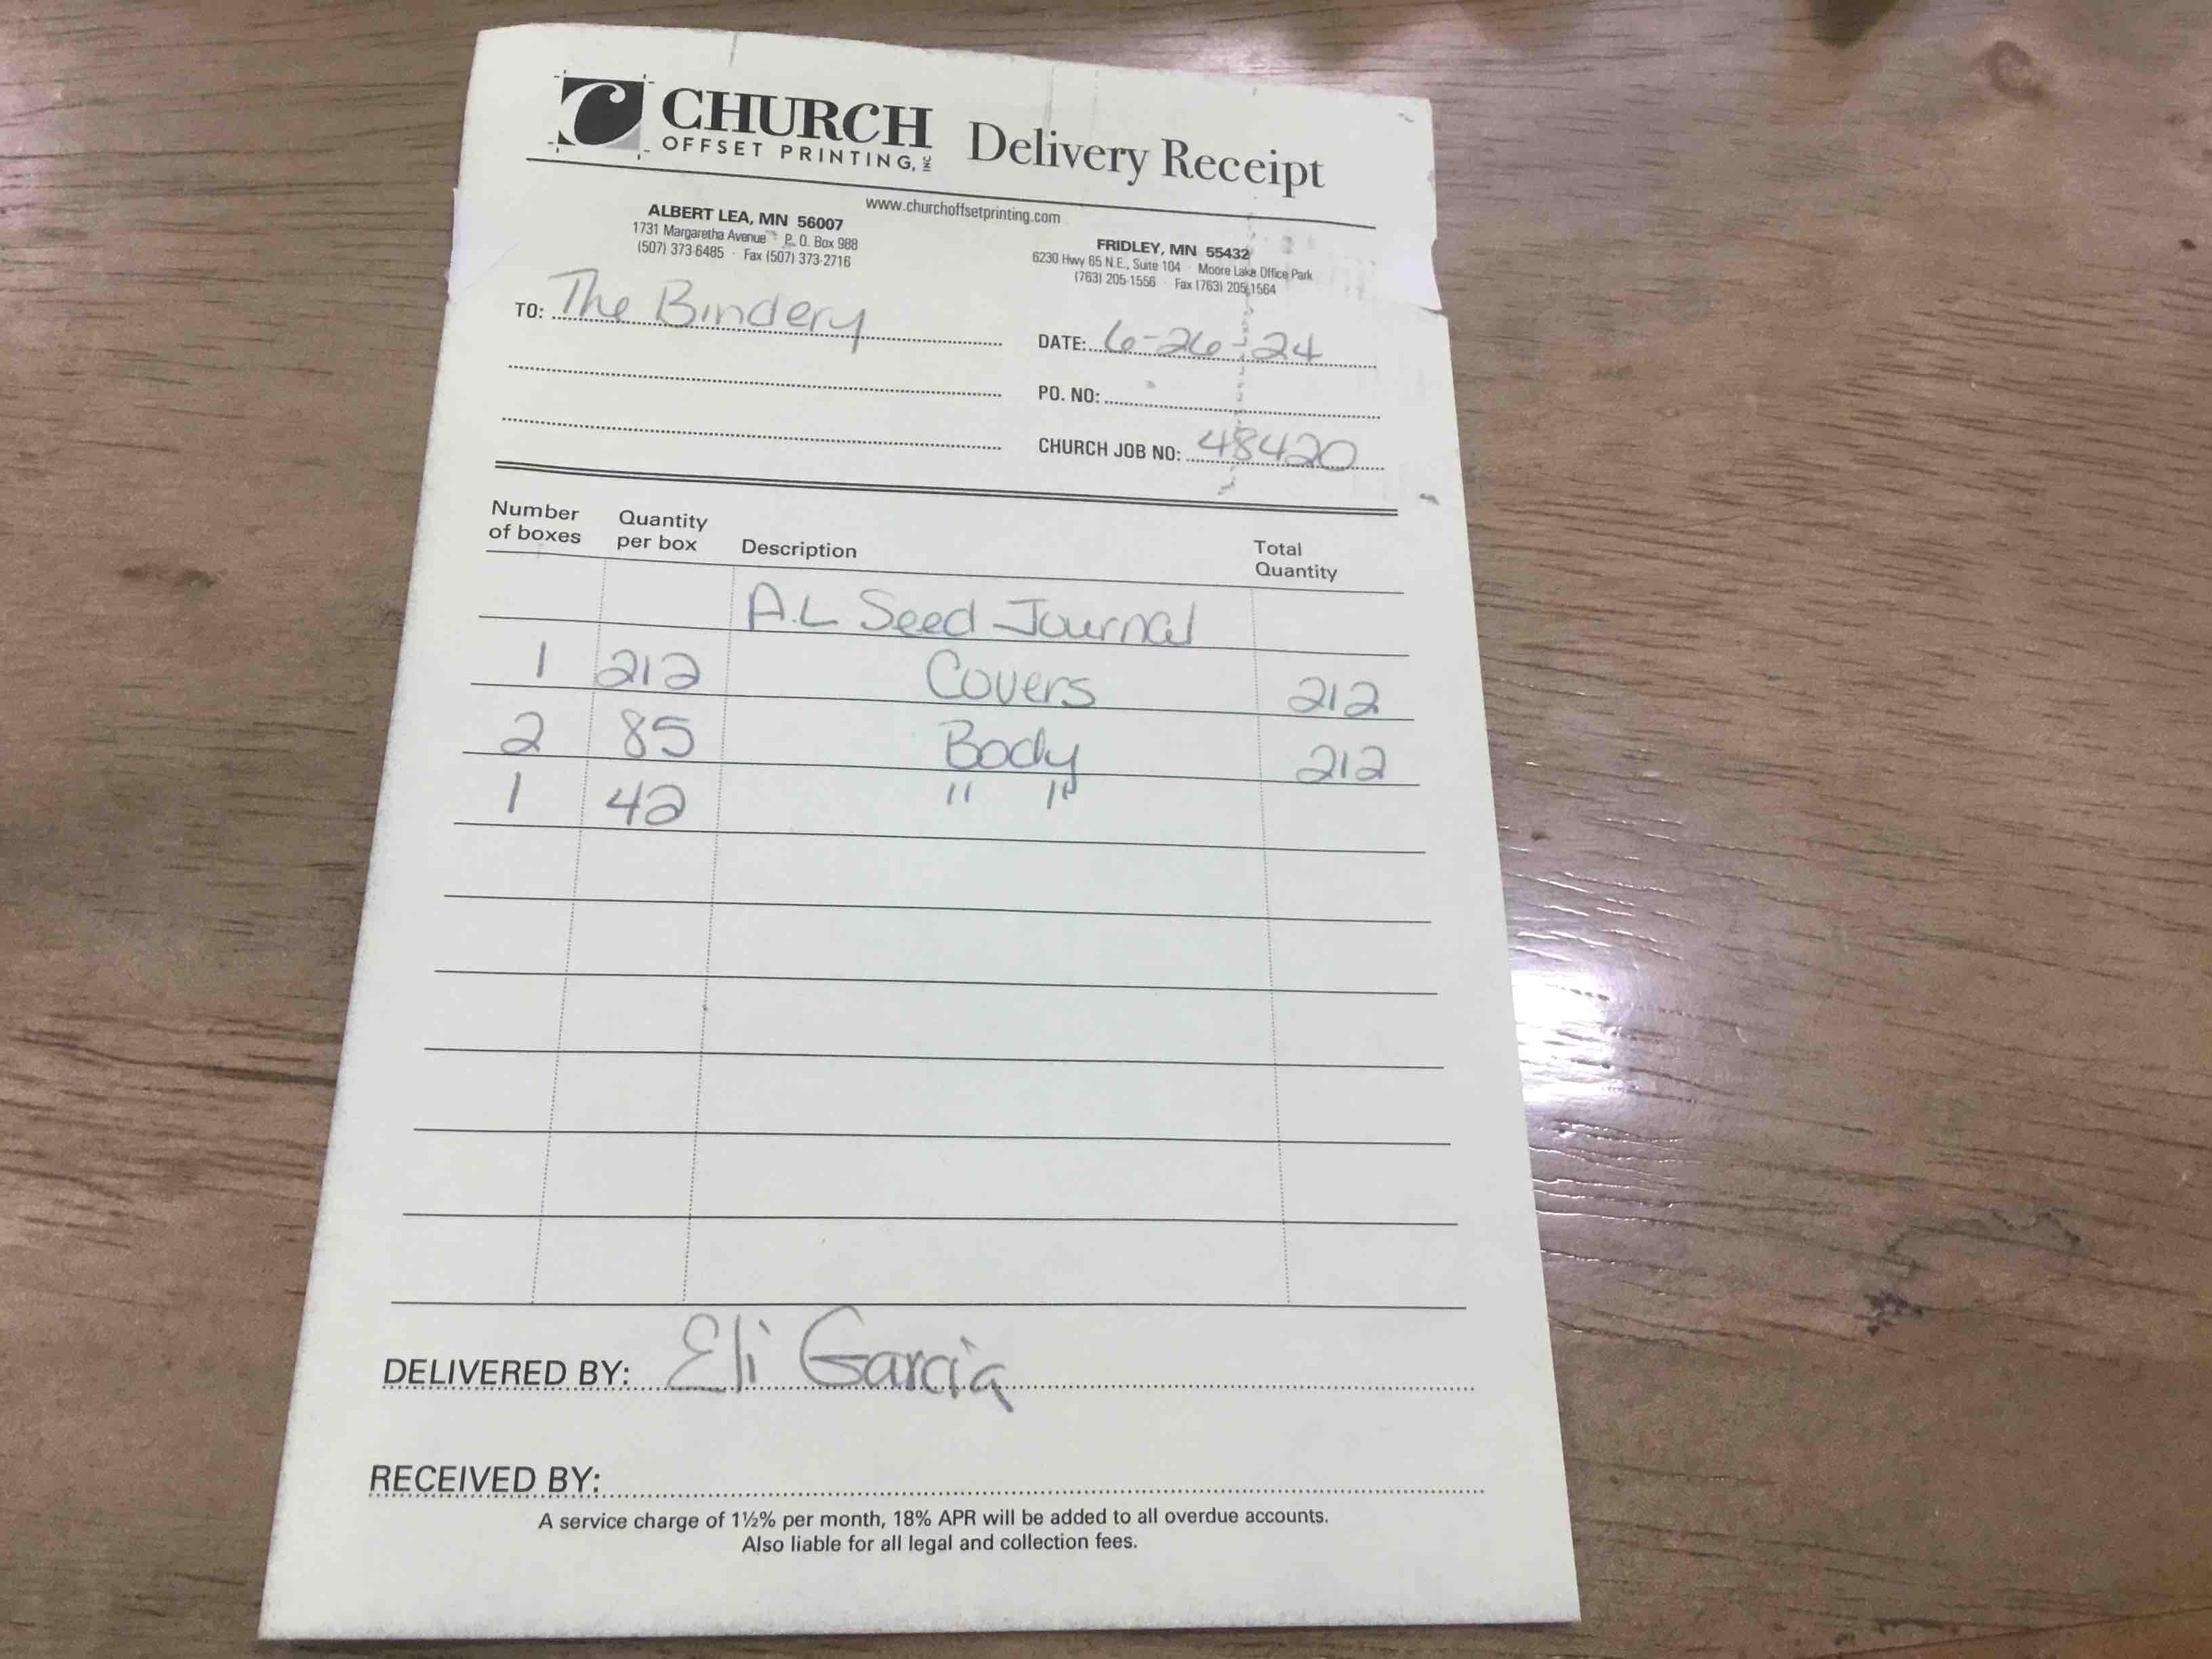 CHURCH
OFFSET PRINTING, INC
Delivery Receipt
www.churchoffsetprinting.com
ALBERT LEA, MN 56007
1731 Margaretha Avenue · P. O. Box 988
(507) 373-6485 · Fax (507) 373-2716
FRIDLEY, MN 55432
6230 Hwy 65 N.E., Suite 104 · Moore Lake Office Park
(763) 205-1556 · Fax (763) 205-1564
TO: The Bindery
DATE: 6-26-24
PO. NO:
CHURCH JOB NO: 48420
Number of boxes Quantity per box Description Total Quantity
A.L Seed Journal
1 212 Covers 212
2 85 Body 212
1 42 " "
DELIVERED BY: Eli Garcia
RECEIVED BY:
A service charge of 1½% per month, 18% APR will be added to all overdue accounts.
Also liable for all legal and collection fees.